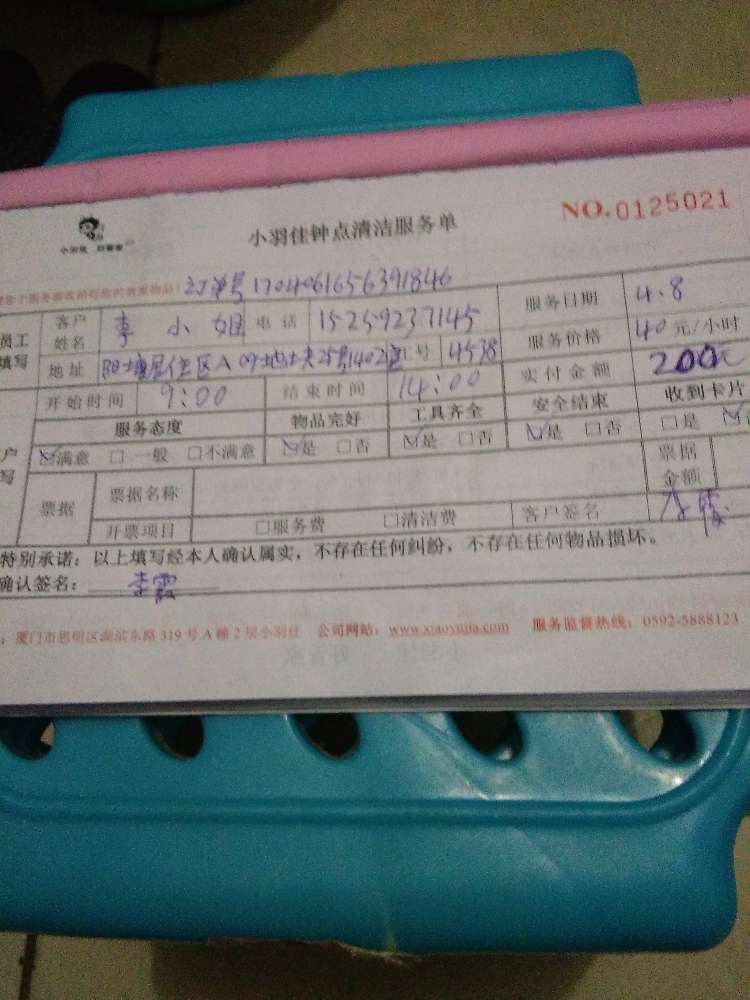 小羽佳 好管家
小羽佳钟点清洁服务单
NO.0125021
订单号 1704061656391846
员工 填写
客户姓名 李小姐 电话 15259237145 服务日期 4.8
地址 居住区A 09地块25号1402室 工号 4538 服务价格 40元/小时
开始时间 9:00 结束时间 14:00 实付金额 200元
服务态度 物品完好 工具齐全 安全结束 收到卡片
☑满意 □一般 □不满意 ☑是 □否 ☑是 □否 ☑是 □否 □是
票据 票据名称 票据金额
开票项目 □服务费 □清洁费 客户签名 李霞
特别承诺：以上填写经本人确认属实，不存在任何纠纷，不存在任何物品损坏。
确认签名：李霞
厦门市思明区湖滨东路319号A幢2层小羽佳 公司网站：www.xiaoyujia.com 服务监督热线：0592-5888123